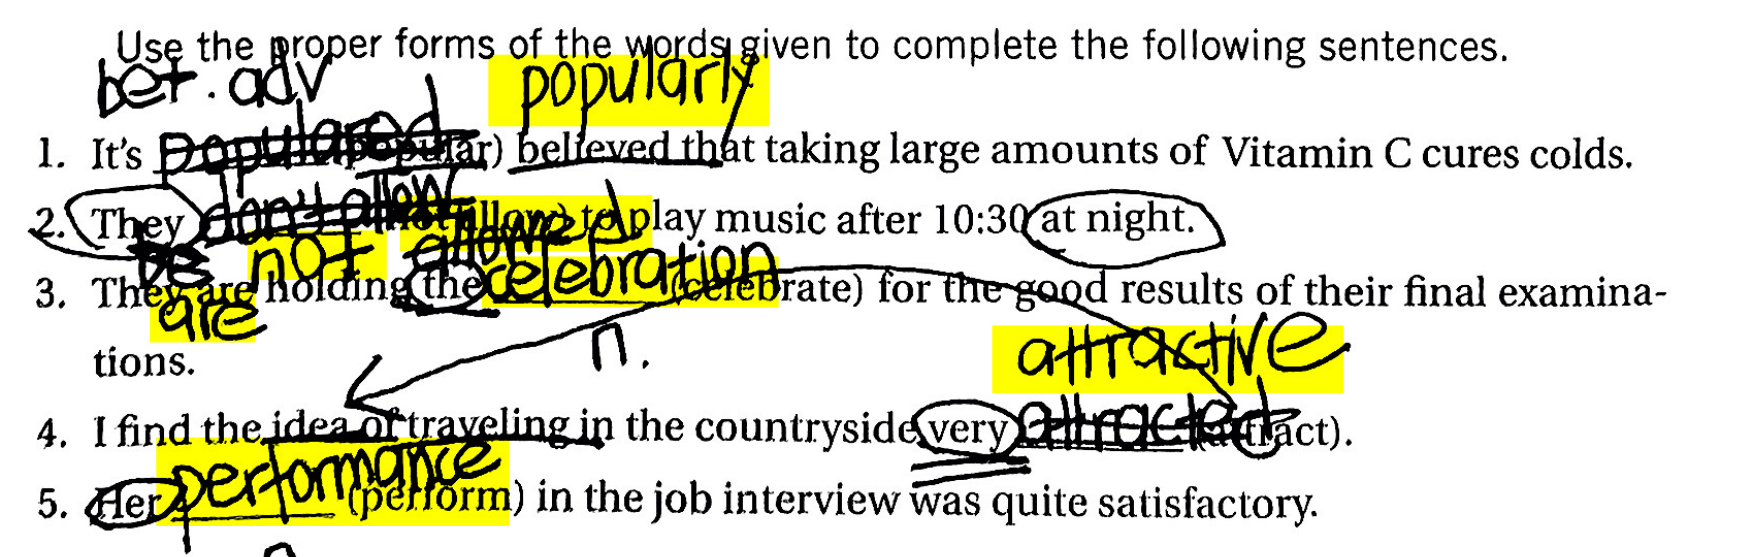 Use the proper forms of the words given to complete the following sentences.
bet. adv popularly
1. It's populared (popular) believed that taking large amounts of Vitamin C cures colds.
2. They don't allow (not allow) to play music after 10:30 at night.
be not allowed
3. They are holding the celebration (celebrate) for the good results of their final examina-
are n. attractive
tions.
4. I find the idea of traveling in the countryside very attracted (attract).
5. Her performance (perform) in the job interview was quite satisfactory.